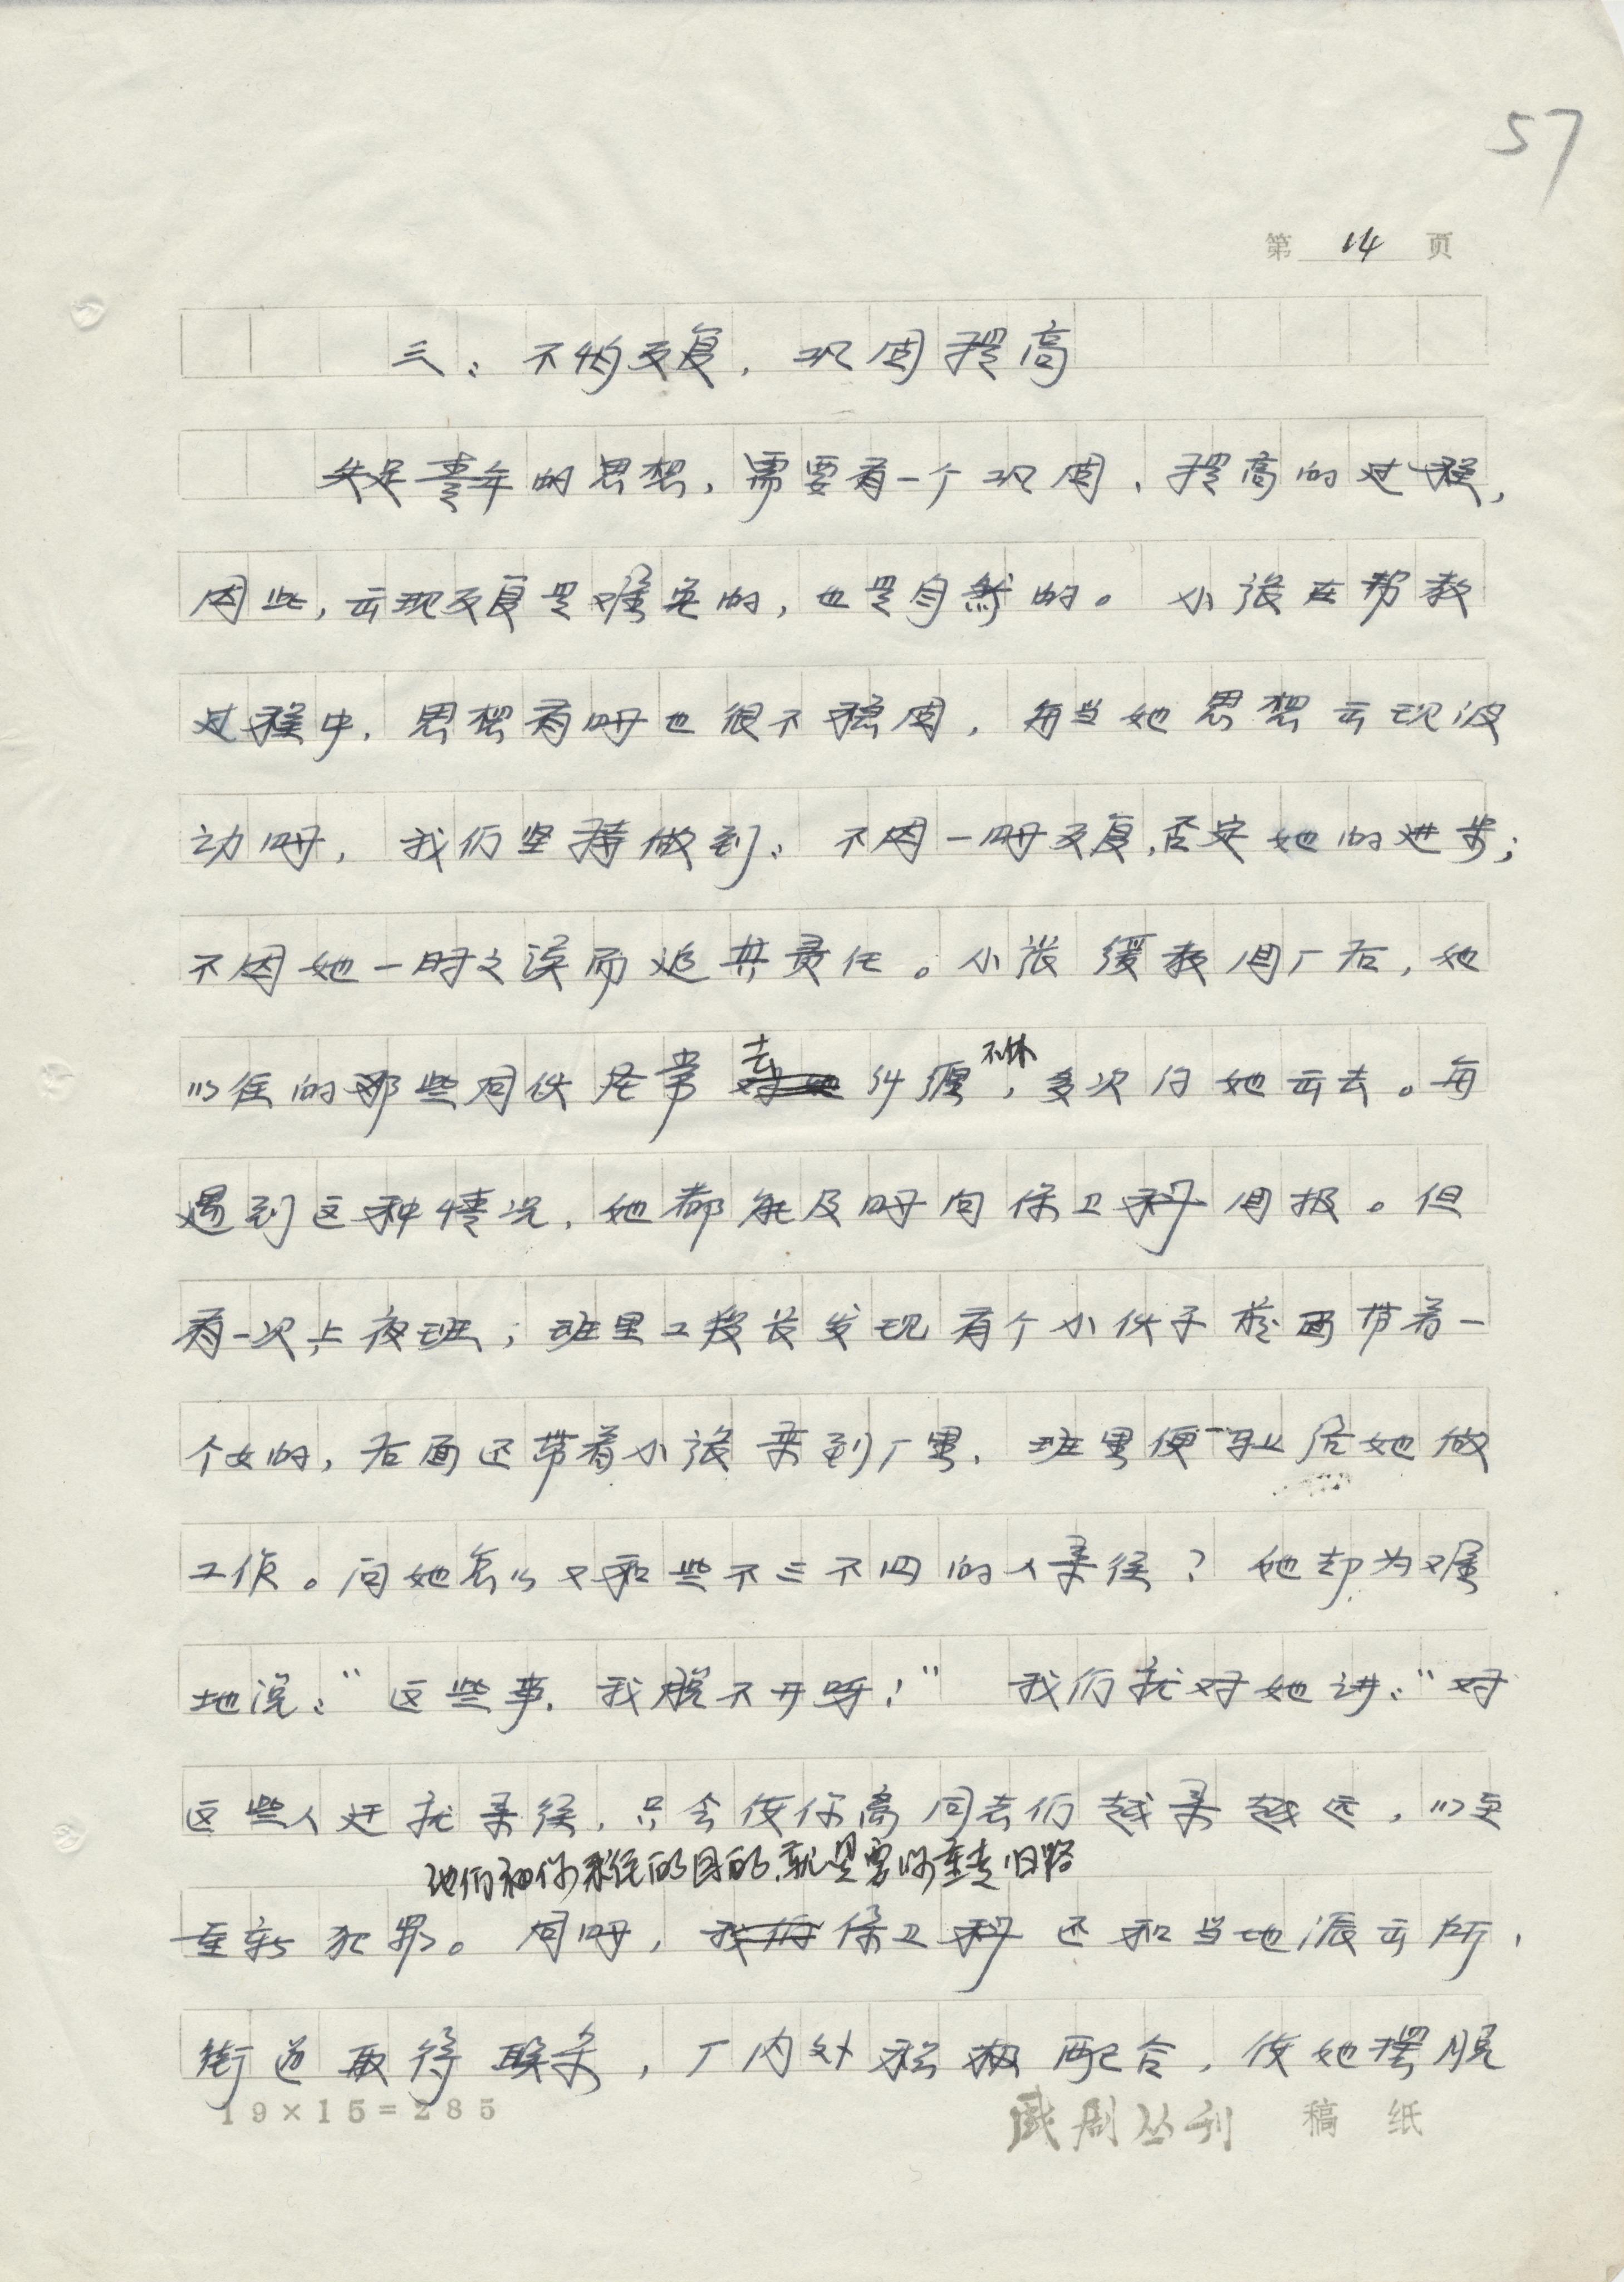 57
第 14 页
三：不怕反复，巩固提高
失足青年的思想，需要有一个巩固、提高的过程，
因此，出现反复是难免的，也是自然的。小张在帮教
过程中，思想有时也很不稳固，每当她思想出现波
动时，我们坚持做到：不因一时反复，否定她的进步；
不因她一时之误而追其责任。小张缓教回厂后，她
以往的那些同伙经常去纠缠不休，多次约她出去。每
遇到这种情况，她都能及时向保卫科回报。但
有一次上夜班，班里工段长发现有个小伙子前面带着一
个女的，后面还带着小张来到厂里，班里便马上给她做
工作。问她怎么又和些不三不四的人来往？她却为难
地说：“这些事，我脱不开呀！”我们就对她讲：“对
这些人迁就来往，只会使你离同志们越来越远，以至
他们和你来往的目的，就是要你重走旧路
重新犯罪。同时，保卫科还和当地派出所、
街道取得联系，厂内外积极配合，使她摆脱
19×15=285
戏剧丛刊 稿纸